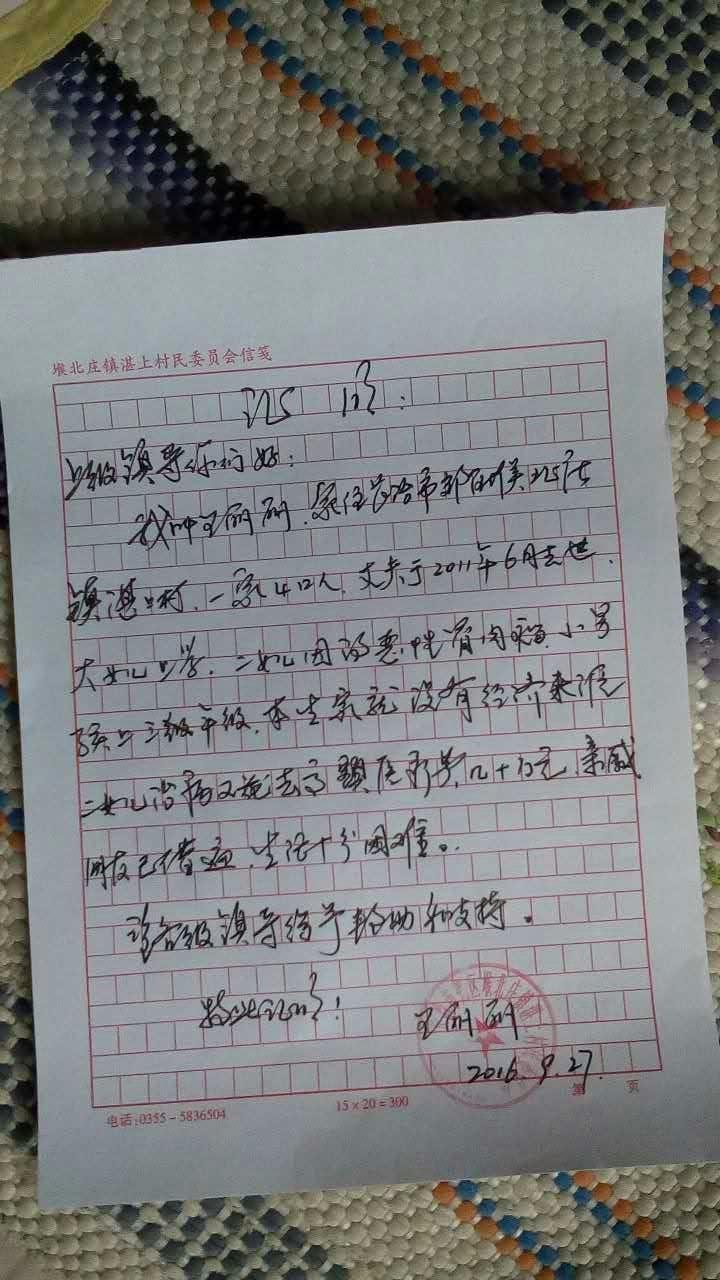 堠北庄镇湛上村民委员会信笺
证 明:
各级领导你们好:
我叫王丽丽.家住长治市郊区堠北庄
镇湛上村.一家4口人.丈夫于2011年6月去世.
大女儿上学.二女儿因患恶性骨肉瘤.小男
孩上三年级.本生家就没有经济来源
二女儿治病又花去了 医疗费几十万元.亲戚
朋友已借遍.生活十分困难。
请各级领导给予帮助和支持。
特此证明!
王丽丽
2016.9.27.
第 页
电话:0355-5836504
15×20=300